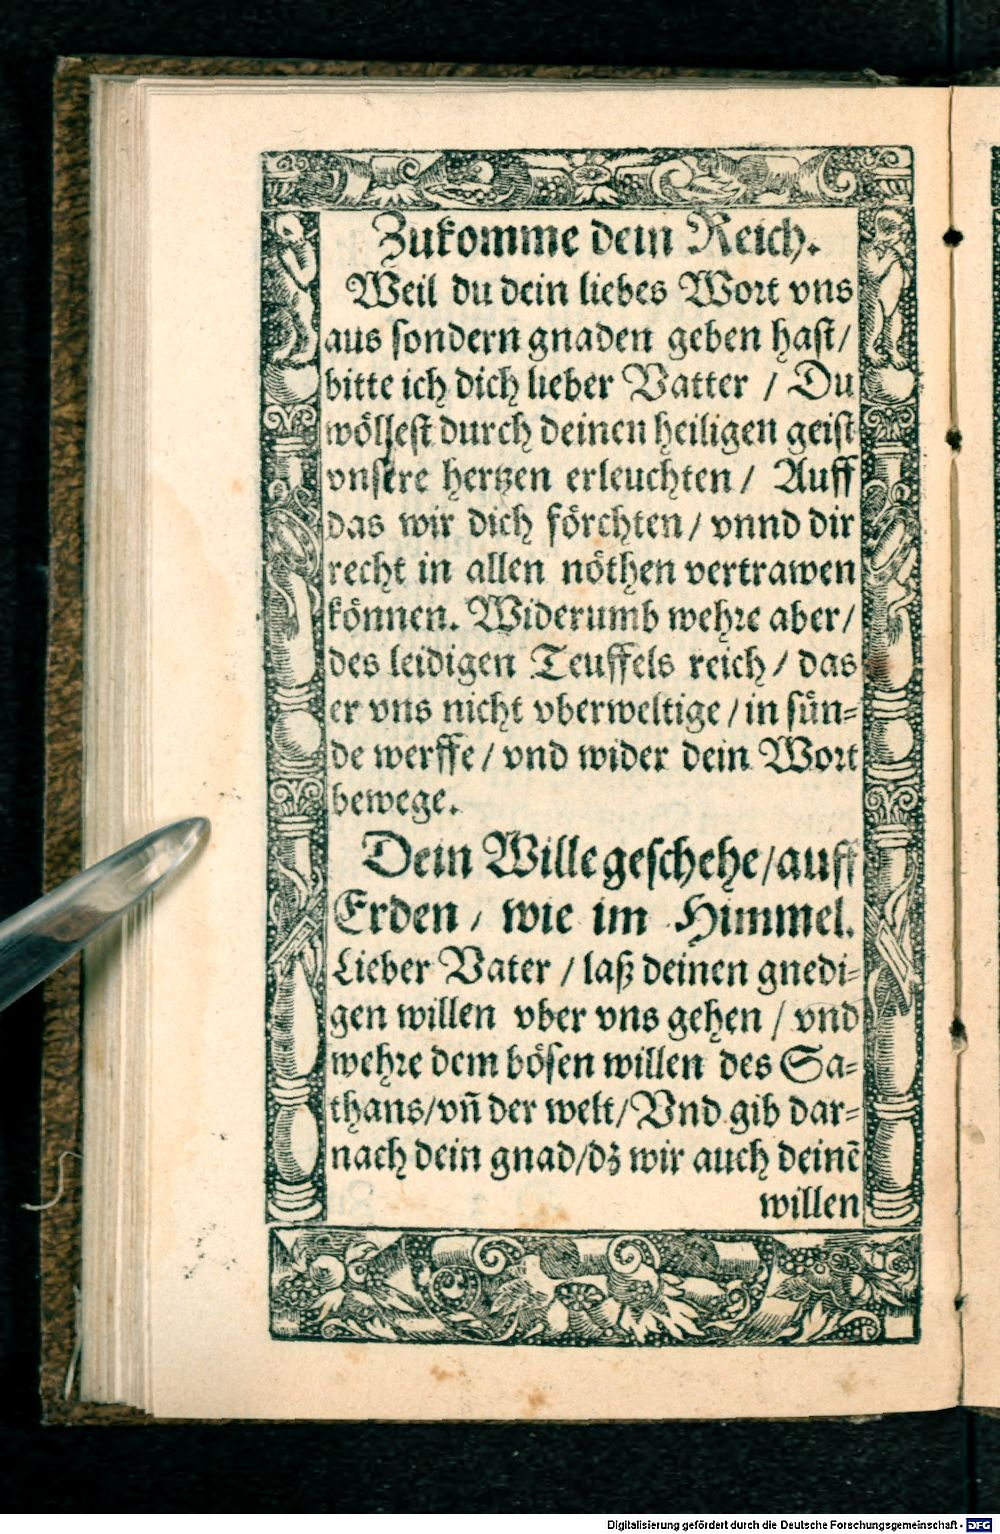 Zukomme dein Reich.
Weil du dein liebes Wort vns
aus sondern gnaden geben hast/
bitte ich dich lieber Vatter / Du
wöllest durch deinen heiligen geist
vnsere hertzen erleuchten / Auff
das wir dich förchten / vnnd dir
recht in allen nöthen vertrawen
können. Widerumb wehre aber/
des leidigen Teuffels reich / das
er vns nicht vberweltige / in sün=
de werffe / vnd wider dein Wort
bewege.
Dein Wille geschehe/auff
Erden / wie im Himmel.
Lieber Vater / laß deinen gnedi=
gen willen vber vns gehen / vnd
wehre dem bösen willen des Sa=
thans/vñ der welt/Vnd gib dar=
nach dein gnad/dz wir auch deinē
willen
Digitalisierung gefördert durch die Deutsche Forschungsgemeinschaft - DFG